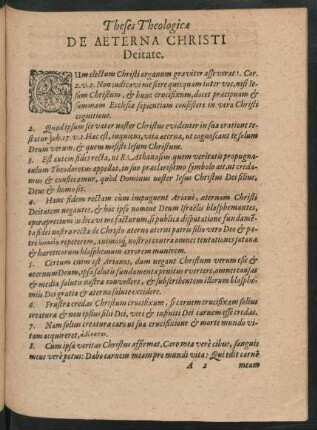 Theses Theologicæ
DE AETERNA CHRISTI
Deitate.
CUm electum Christi organum graviter asseverat 1. Cor.
2.v.2. Non iudicavi me scire quicquam inter vos, nisi Ie-
sum Christum, & hunc crucifixum, docet præcipuam &
summam Ecclesiæ sapientiam consistere in vera Christi
cognitione.
2. Quod ipsum servator noster Christus evidenter in sua oratione te-
statur Joh. 17. v.3. Hæc est, inquiens, vita æterna, ut cognoscant te solum
Deum verum, & quem misisti Iesum Christum.
3. Est autem fides recta, ut B. Athanasium quem veritatis propugna-
culum Theodoretus appellat, in suo præclarissimo symbolo ait, ut creda-
mus & confiteamur, quòd Dominus noster Iesus Christus Dei filius,
Deus & homo sit.
4. Hanc fidem rectam cum impugnent Ariani, æternam Christi
Deitatem negantes, & hoc ipso nomini Deum Israëlis blasphemantes,
operæpretium me facturum, si publica disputatione fundamen-
ta fidei nostræ rectæ de Christo æterno æterni patris filio vero Deo & pa-
tri repeterem, animosq; nostros contra omnes tentationes satanæ
& hæreticorum blasphemum errorem munirem.
5. Certum autem est Arianos, dum negant Christum verum esse &
æternum Deum, ipsa salutis fundamenta penitus evertere, omnes causas
& media salutis nostræ convellere, & subscribentem illorum blasphe-
miis Dei gratia & æterna salute excidere.
6. Frustra credas Christum crucifixum, si carnem crucifixam solius
creaturæ & non ipsius filii Dei, veri & infiniti Dei carnem esse credas.
7. Nam solius creaturæ caro sua crucifixione & morte mundo vi-
tam acquireret,
8. Cum ipsa veritas Christus affirmat, Caro mea verè cibus, sanguis
meus verè potus: Dabo carnem meam pro mundi vita: Qui edit carnē
A 2 meam